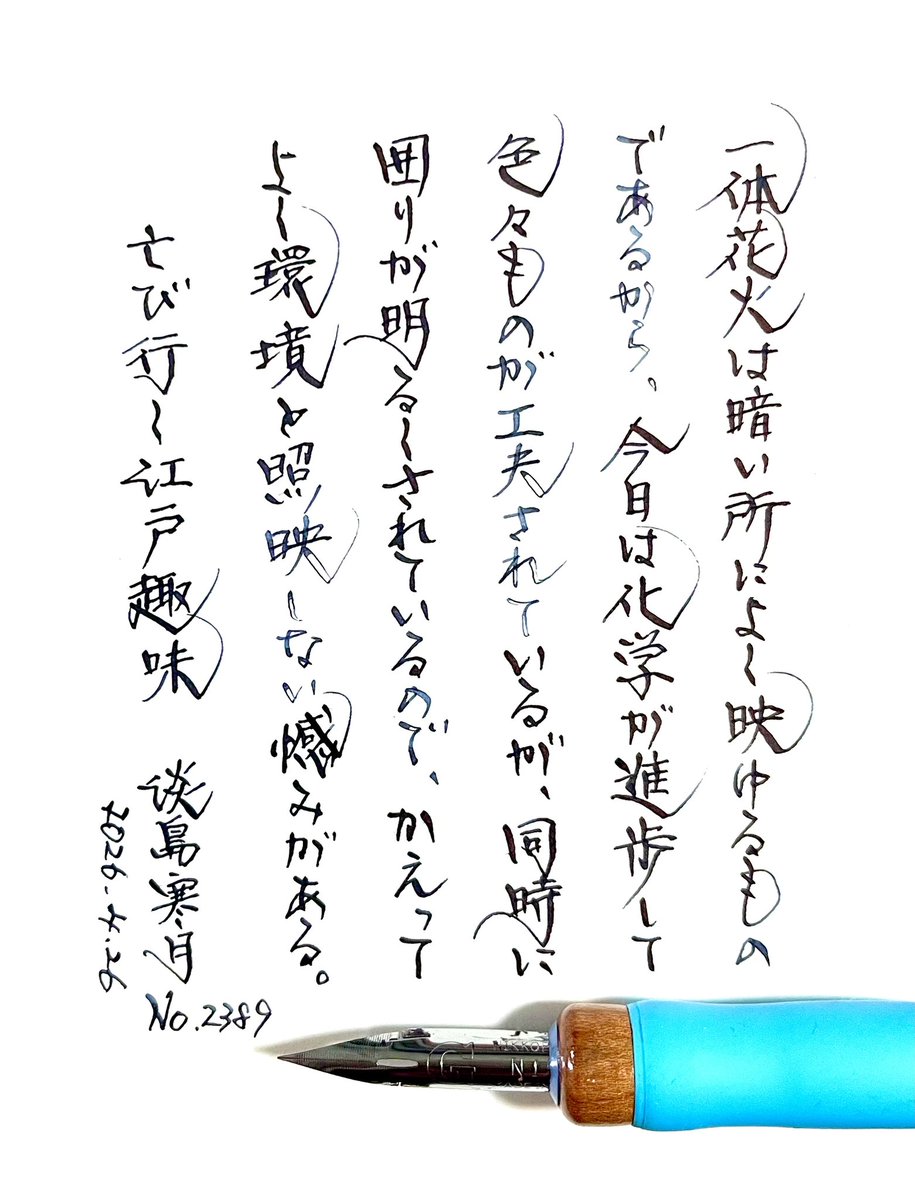 一体花火は暗い所によく映ゆるもの
であるから、今日は化学が進歩して
色々ものが工夫されているが、同時に
囲りが明るくされているので、かえって
よく環境と照映しない憾みがある。
亡び行く江戸趣味 淡島寒月
2026.4.26
No.2389
G
NI